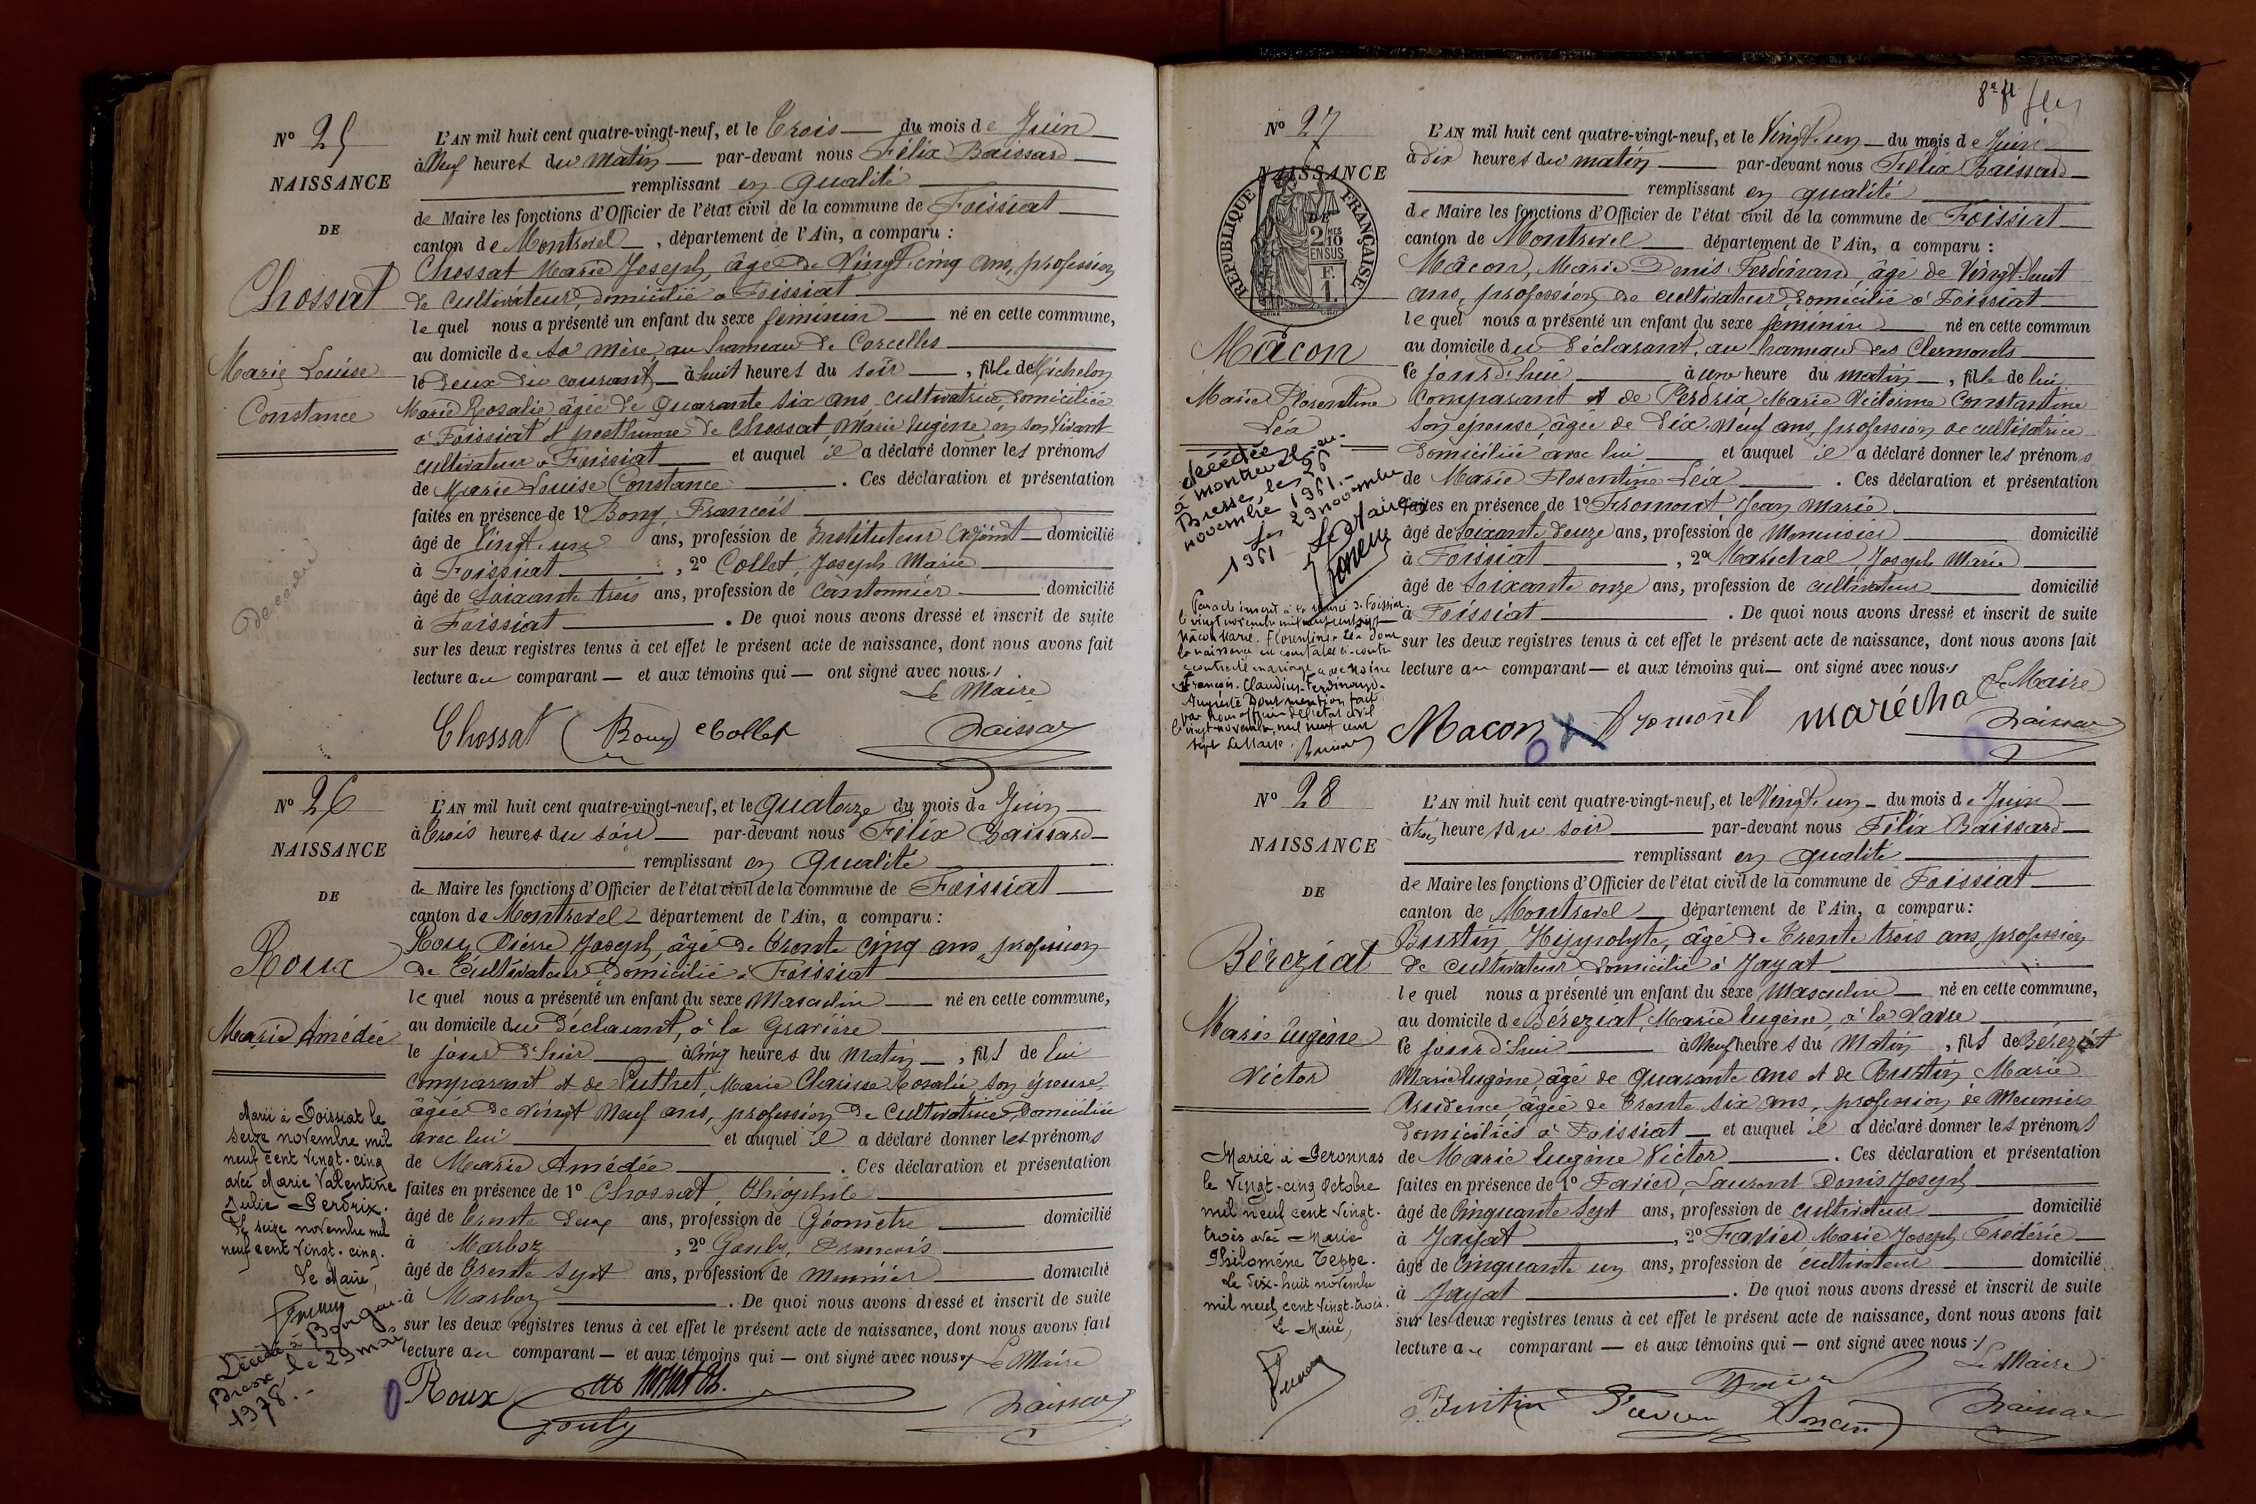 Nº 25
NAISSANCE
DE
Chossat
Marie Louise
Constance
Décédée
L'AN mil huit cent quatre-vingt-neuf, et le Trois du mois de Juin
à Neuf heures du matin par-devant nous Félix Baissard
remplissant en qualité
de Maire les fonctions d'Officier de l'état civil de la commune de Foissiat
canton de Montrevel, département de l'Ain, a comparu :
Chossat Marie Joseph, âgé de Vingt cinq ans, profession
de cultivateur, domicilié à Foissiat
lequel nous a présenté un enfant du sexe feminin né en cette commune,
au domicile de sa mère, au hameau de Corcelles
le deux du courant à huit heures du soir, fille de Michelon
Marie Rosalie âgée de quarante six ans, cultivatrice, domiciliée
à Foissiat et posthume de Chossat, Marie Eugène en son vivant
cultivateur à Foissiat et auquel il a déclaré donner les prénoms
de Marie Louise Constance. Ces déclaration et présentation
faites en présence de 1º Bony, Francois
âgé de Vingt-un ans, profession de Instituteur adjoint domicilié
à Foissiat, 2º Collet, Joseph Marie
âgé de Soixante trois ans, profession de Cantonnier domicilié
à Foissiat. De quoi nous avons dressé et inscrit de suite
sur les deux registres tenus à cet effet le présent acte de naissance, dont nous avons fait
lecture au comparant — et aux témoins qui — ont signé avec nous.
Le Maire
Chossat Bony Collet Baissard
Nº 26
NAISSANCE
DE
Roux
Marie Amédée
Marié à Foissiat le
seize novembre mil
neuf cent vingt-cinq
avec Marie Valentine
Julie Perdrix.
Le seize novembre mil
neuf cent vingt-cinq.
Le Maire,
Décédé à Bourg-en-
Bresse, le 29 mai
1978.-
L'AN mil huit cent quatre-vingt-neuf, et le quatorze du mois de Juin
à trois heures du soir par-devant nous Félix Baissard
remplissant en qualité
de Maire les fonctions d'Officier de l'état civil de la commune de Foissiat
canton de Montrevel département de l'Ain, a comparu :
Roux Pierre Joseph, âgé de trente cinq ans, profession
de Cultivateur, domicilié à Foissiat
lequel nous a présenté un enfant du sexe Masculin né en cette commune,
au domicile du Déclarant, à la Gravière
le jour d'hier à cinq heures du matin, fils de lui
comparant et de Puthet, Marie Clarisse Rosalie son épouse,
âgée de vingt Neuf ans, profession de Cultivatrice, domiciliée
avec lui et auquel il a déclaré donner les prénoms
de Marie Amédée. Ces déclaration et présentation
faites en présence de 1º Chossat, Théophile
âgé de trente deux ans, profession de Géomètre domicilié
à Marboz, 2º Gouly, Francois
âgé de trente sept ans, profession de meunier domicilié
à Marboz. De quoi nous avons dressé et inscrit de suite
sur les deux registres tenus à cet effet le présent acte de naissance, dont nous avons fait
lecture au comparant — et aux témoins qui — ont signé avec nous. Le Maire
Roux
Gouly Baissard
8e ft
Nº 27
NAISSANCE
DE
RÉPUBLIQUE FRANÇAISE
2/10 MES
EN SUS
F.
1.
Mâcon
Marie Florentine
Léa
décédée
à Montrevel-en-
Bresse, le 26
novembre 1961.-
Le 29 novembre
1961 Le Maire
Par acte inscrit à la mairie de Foissiat
le vingt novembre mil neuf cent sept
Mâcon Marie-Florentine-Léa dont
la naissance est constatée ci-contre
a contracté mariage avec
François-Claudius-Ferdinand-
Auguste Dont mention faite
par nous officier de l'état civil
le vingt novembre mil neuf cent
sept Le Maire.
L'AN mil huit cent quatre-vingt-neuf, et le Vingt-un du mois de Juin
à dix heures du matin par-devant nous Félix Baissard
remplissant en qualité
de Maire les fonctions d'Officier de l'état civil de la commune de Foissiat
canton de Montrevel département de l'Ain, a comparu :
Mâcon, Marie Denis Ferdinand âgé de Vingt-huit
ans, profession de cultivateur, domicilié à Foissiat
lequel nous a présenté un enfant du sexe féminin né en cette commun
au domicile du déclarant, au hameau des Clermonts
le jour d'hui à une heure du matin, fille de lui
Comparant et de Perdrix Marie Victorine Constantine
son épouse, âgée de Dix-Neuf ans, profession de cultivatrice
domiciliée avec lui et auquel il a déclaré donner les prénoms
de Marie Florentine Léa. Ces déclaration et présentation
faites en présence de 1º Fromont Jean Marie
âgé de Soixante douze ans, profession de Menuisier domicilié
à Foissiat, 2º Maréchal, Joseph Marie
âgé de Soixante onze ans, profession de cultivateur domicilié
à Foissiat. De quoi nous avons dressé et inscrit de suite
sur les deux registres tenus à cet effet le présent acte de naissance, dont nous avons fait
lecture au comparant — et aux témoins qui — ont signé avec nous.
Le Maire
Macon Fromont maréchal Baissard
Nº 28
NAISSANCE
DE
Béréziat
Marie Eugène
Victor
Marié à Peronnas
le Vingt-cinq Octobre
mil neuf cent vingt-
trois avec Marie
Philomène Teppe.
Le dix-huit novembre
mil neuf cent vingt-trois.
Le Maire,
L'AN mil huit cent quatre-vingt-neuf, et le Vingt-un du mois de Juin
à trois heures du soir par-devant nous Félix Baissard
remplissant en qualité
de Maire les fonctions d'Officier de l'état civil de la commune de Foissiat
canton de Montrevel département de l'Ain, a comparu :
Bustin, Hippolyte, âgé de trente trois ans, profession
de cultivateur, domicilié à Jayat
lequel nous a présenté un enfant du sexe Masculin né en cette commune,
au domicile de Béréziat, Marie Eugène, à la
le jour d'hui à Neuf heures du Matin, fils de Béréziat
Marie Eugène, âgé de quarante ans et de Bustin Marie
Prudence, âgée de trente six ans, profession de Meuniers
domiciliés à Foissiat et auquel il a déclaré donner les prénoms
de Marie Eugène Victor. Ces déclaration et présentation
faites en présence de 1º Favier, Laurent Denis Joseph
âgé de Cinquante sept ans, profession de cultivateur domicilié
à Jayat, 2º Favier Marie Joseph Frédéric
âgé de Cinquante un ans, profession de cultivateur domicilié
à Jayat. De quoi nous avons dressé et inscrit de suite
sur les deux registres tenus à cet effet le présent acte de naissance, dont nous avons fait
lecture au comparant — et aux témoins qui — ont signé avec nous.
Le Maire
Bustin Favier Baissard